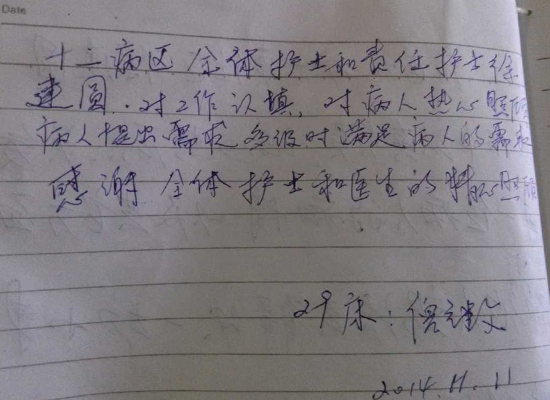 Date
十二病区全体护士和责任护士徐
建圆.对工作认填,对病人热心照顾
病人提出需求多级时满足病人的需求
感谢全体护士和医生的精心照顾
29床:
2014.11.11